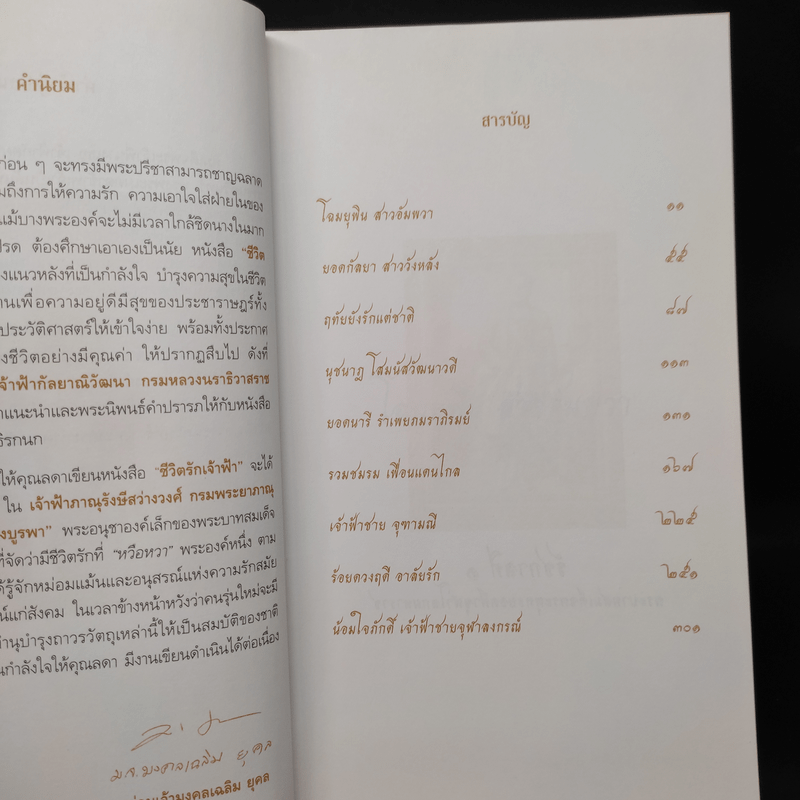 คำนิยม
ก่อน ๆ จะทรงมีพระปรีชาสามารถชาญฉลาด
ถึงการให้ความรัก ความเอาใจใส่ฝ่ายในของ
แม้บางพระองค์จะไม่มีเวลาใกล้ชิดนางในมาก
ต้องศึกษาเอาเองเป็นนัย หนังสือ "ชีวิต
แนวหลังที่เป็นกำลังใจ บำรุงความสุขในชีวิต
เพื่อความอยู่ดีมีสุขของประชาราษฎร์ทั้ง
ประวัติศาสตร์ให้เข้าใจง่าย พร้อมทั้งประกาศ
ชีวิตอย่างมีคุณค่า ให้ปรากฏสืบไป ดังที่
เจ้าฟ้ากัลยาณิวัฒนา กรมหลวงนราธิวาสราช
แนะนำและพระนิพนธ์คำปรารภให้กับหนังสือ
ให้คุณลดาเขียนหนังสือ "ชีวิตรักเจ้าฟ้า" จะได้
ใน เจ้าฟ้าภาณุรังษีสว่างวงศ์ กรมพระยาภาณุ
บูรพา" พระอนุชาองค์เล็กของพระบาทสมเด็จ
ที่จัดว่ามีชีวิตรักที่ "หวือหวา" พระองค์หนึ่ง ตาม
รู้จักหม่อมแม้นและอนุสรณ์แห่งความรักสมัย
แก่สังคม ในเวลาข้างหน้าหวังว่าคนรุ่นใหม่จะมี
บำรุงถาวรวัตถุเหล่านี้ให้เป็นสมบัติของชาติ
กำลังใจให้คุณลดา มีงานเขียนดำเนินได้ต่อเนื่อง
ม.จ.มงคลเฉลิม ยุคล
เจ้ามงคลเฉลิม ยุคล
สารบัญ
โฉมยุพิน สาวอัมพวา ๑๑
ยอดกัลยา สาววังหลัง ๕๕
ฤทัยยังรักแต่ชาติ ๘๗
นุชนาฏ โสมนัสวัฒนาวดี ๑๑๓
ยอดนารี รำเพยภมราภิรมย์ ๑๓๑
รวมชมรม เพื่อนแดนไกล ๑๖๗
เจ้าฟ้าชาย จุฑามณี ๒๒๕
ร้อยดวงฤดี อาลัยรัก ๒๕๑
น้อมใจภักดิ์ เจ้าฟ้าชายจุฬาลงกรณ์ ๓๐๑